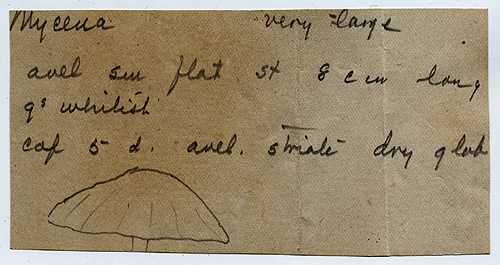 Mycena very large
avel sm flat st 8 cm long
gs whitish
cap 5 d. avel. striate dry glab